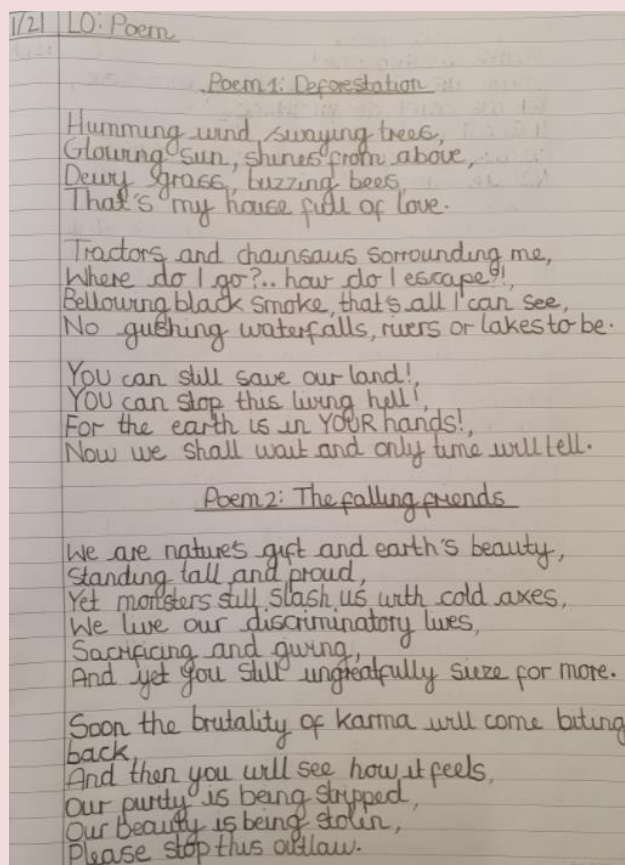 1/21 LO: Poem
Poem 1: Deforestation
Humming wind, swaying trees,
Glowing sun, shines from above,
Dewy grass, buzzing bees,
That's my house full of love.
Tractors and chainsaws sorrounding me,
Where do I go?.. how do I escape?!,
Bellowing black smoke, that's all I can see,
No gushing waterfalls, rivers or lakes to be.
You can still save our land!,
You can stop this living hell!,
For the earth is in YOUR hands!,
Now we shall wait and only time will tell.
Poem 2: The falling friends
We are natures gift and earth's beauty,
Standing tall and proud,
Yet monsters still slash us with cold axes,
We live our discriminatory lives,
Sacrificing and giving,
And yet you still ungreatfully sieze for more.
Soon the brutality of karma will come biting
back,
And then you will see how it feels,
Our purity is being stripped,
Our beauty is being stolin,
Please stop this outlaw.